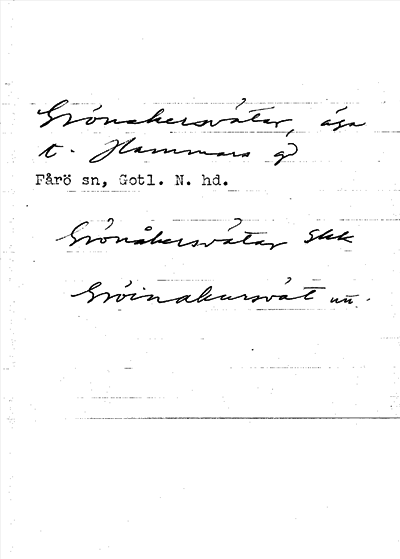 Grönakersvätar, äga
t. Hammars gd
Fårö sn, Gotl. N. hd.
Grönåkersvätar Skk
Gröinakursvät un.